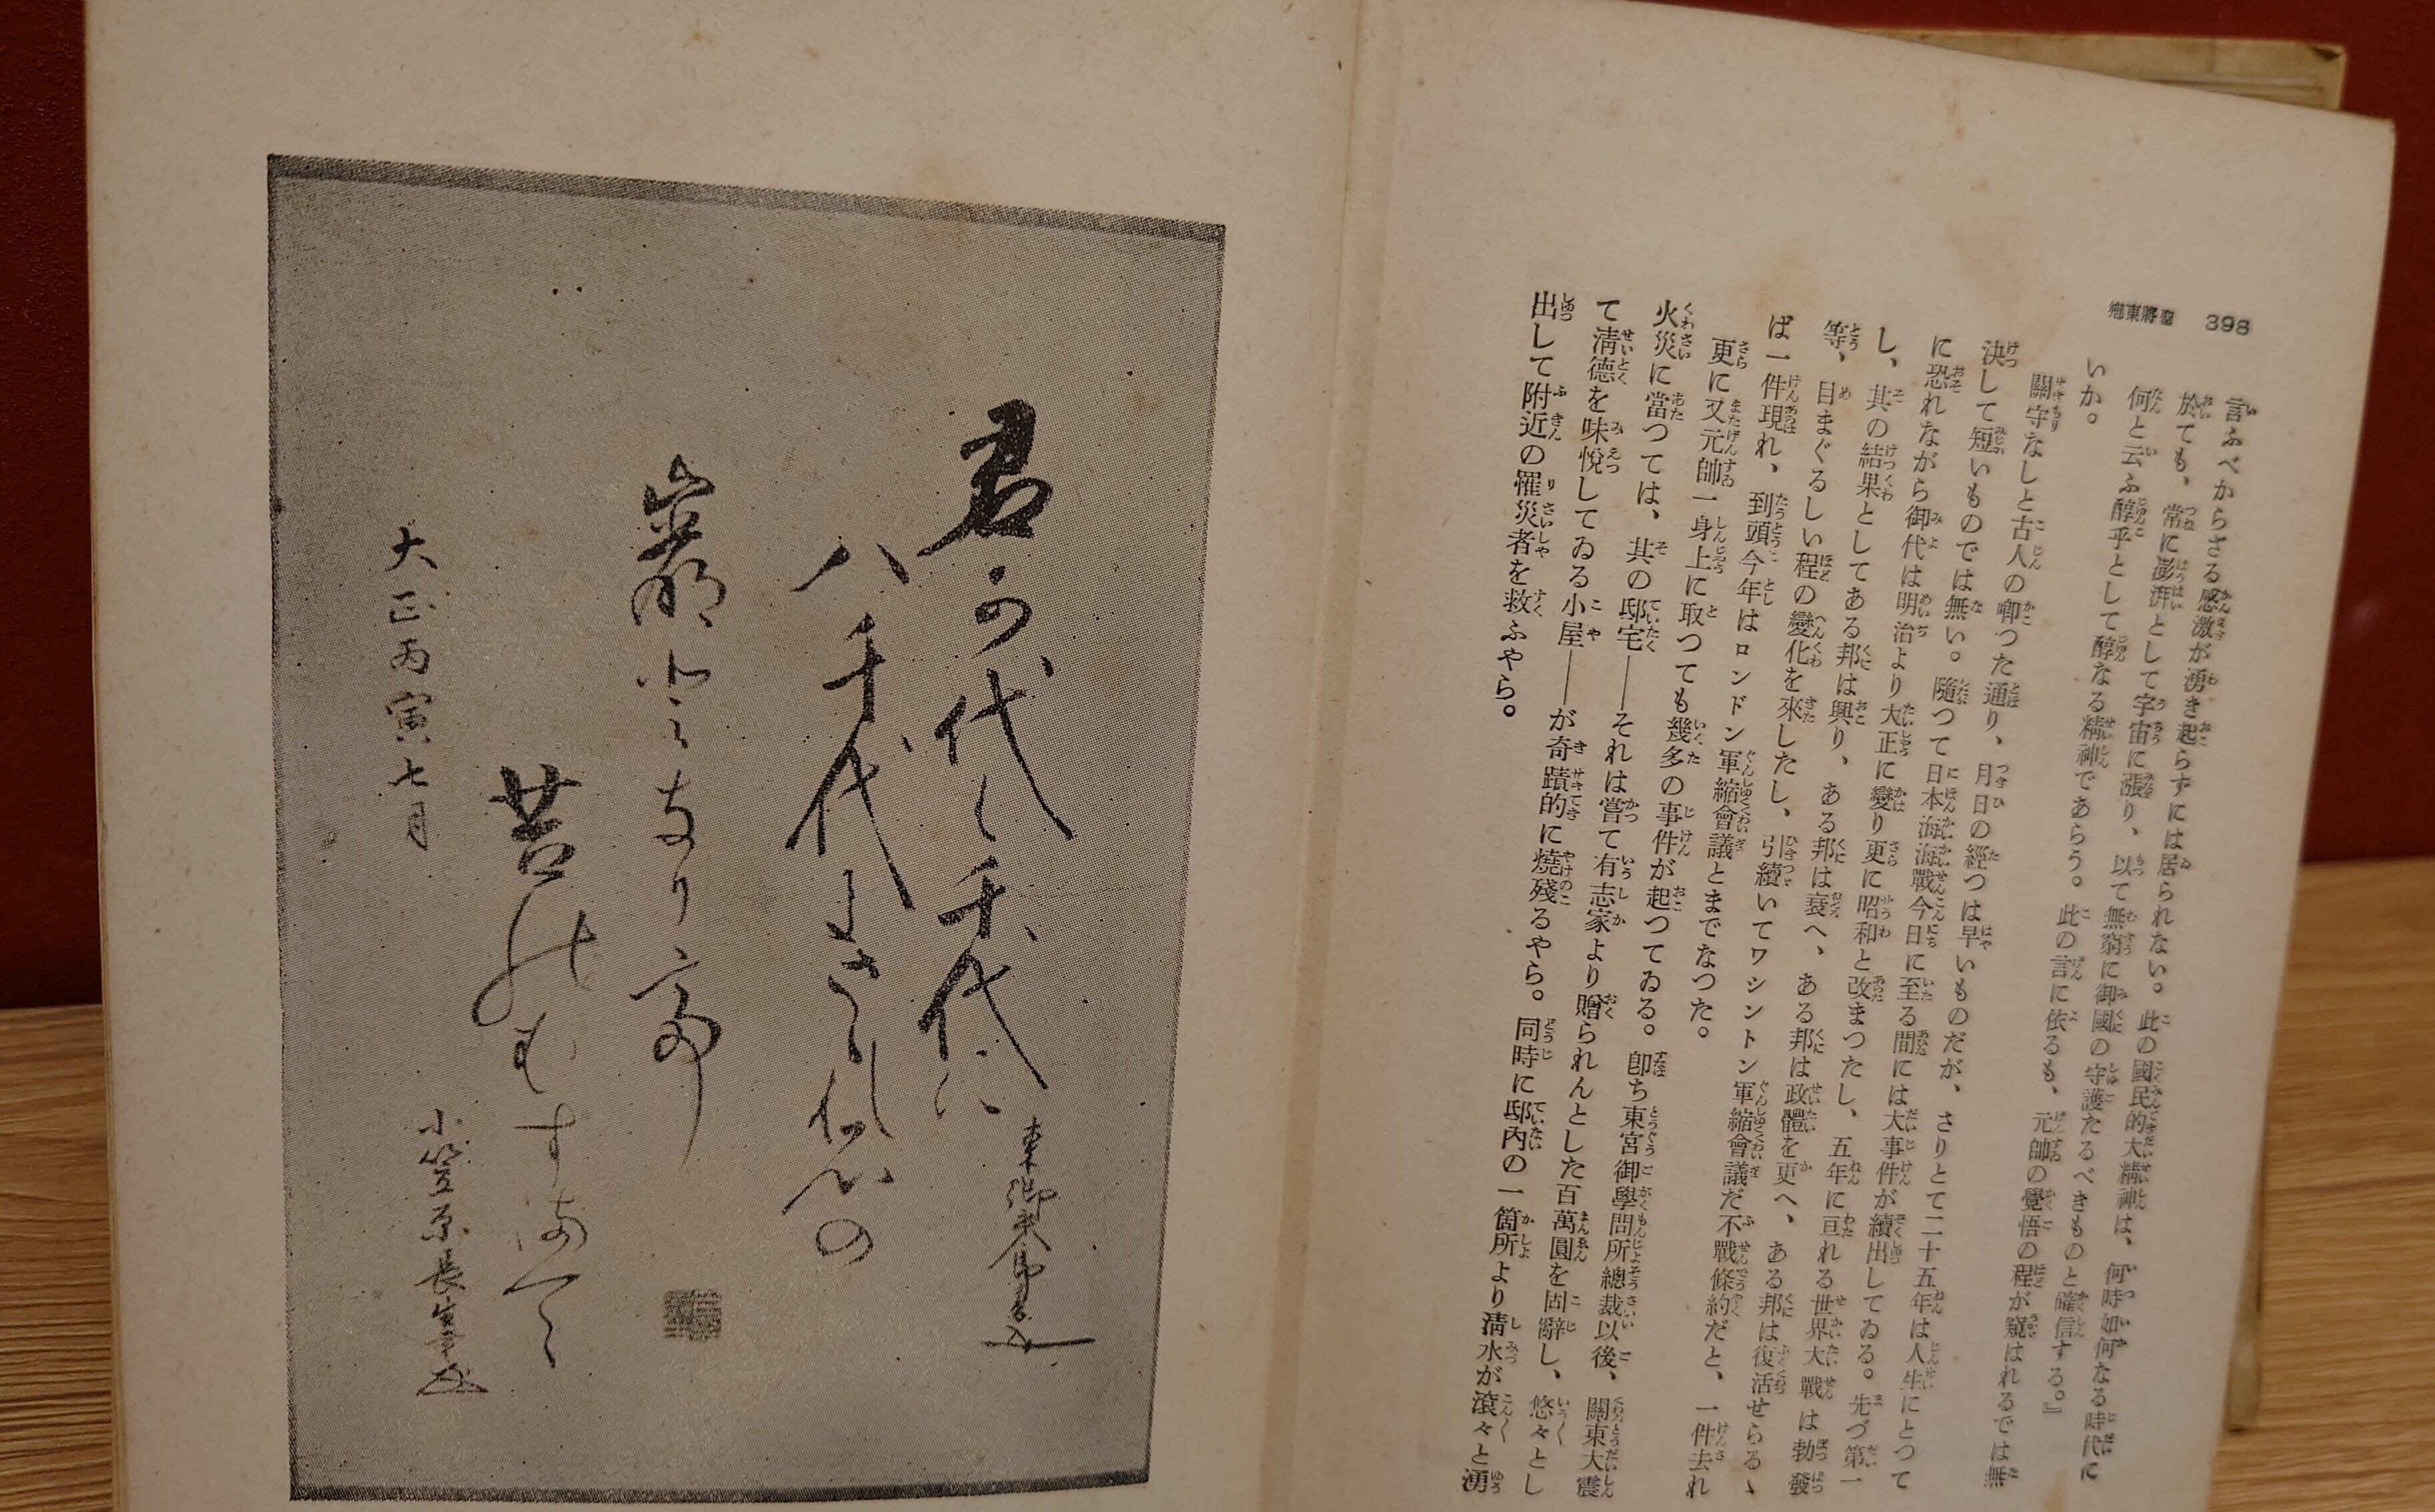 398 聖將東鄕
言ふべからざる感激が湧き起らずには居られない。此の國民的大精神は、何時如何なる時代に
於ても、常に澎湃として宇宙に漲り、以て無窮に御國の守護たるべきものと確信する。』
何と云ふ醇乎として醇なる精神であらう。此の言に依るも、元帥の覺悟の程が窺はれるでは無
いか。
關守なしと古人の喞つた通り、月日の經つは早いものだが、さりとて二十五年は人生にとつて
決して短いものでは無い。隨つて日本海海戰今日に至る間には大事件が續出してゐる。先づ第一
に恐れながら御代は明治より大正に變り更に昭和と改まつたし、五年に亘れる世界大戰は勃發
し、其の結果としてある邦は興り、ある邦は衰へ、ある邦は政體を更へ、ある邦は復活せらるゝ
等、目まぐるしい程の變化を來したし、引續いてワシントン軍縮會議だ不戰條約だと、一件去れ
ば一件現れ、到頭今年はロンドン軍縮會議とまでなつた。
更に又元帥一身上に取つても幾多の事件が起つてゐる。卽ち東宮御學問所總裁以後、關東大震
火災に當つては、其の邸宅——それは嘗て有志家より贈られんとした百萬圓を固辭し、悠々とし
て淸德を味悅してゐる小屋——が奇蹟的に燒殘るやら。同時に邸內の一箇所より淸水が滾々と湧
出して附近の罹災者を救ふやら。
君可代ハ千代に
八千代にさゝれ石の
巖となりて
苔のむすまて
大正丙寅七月
小笠原長生